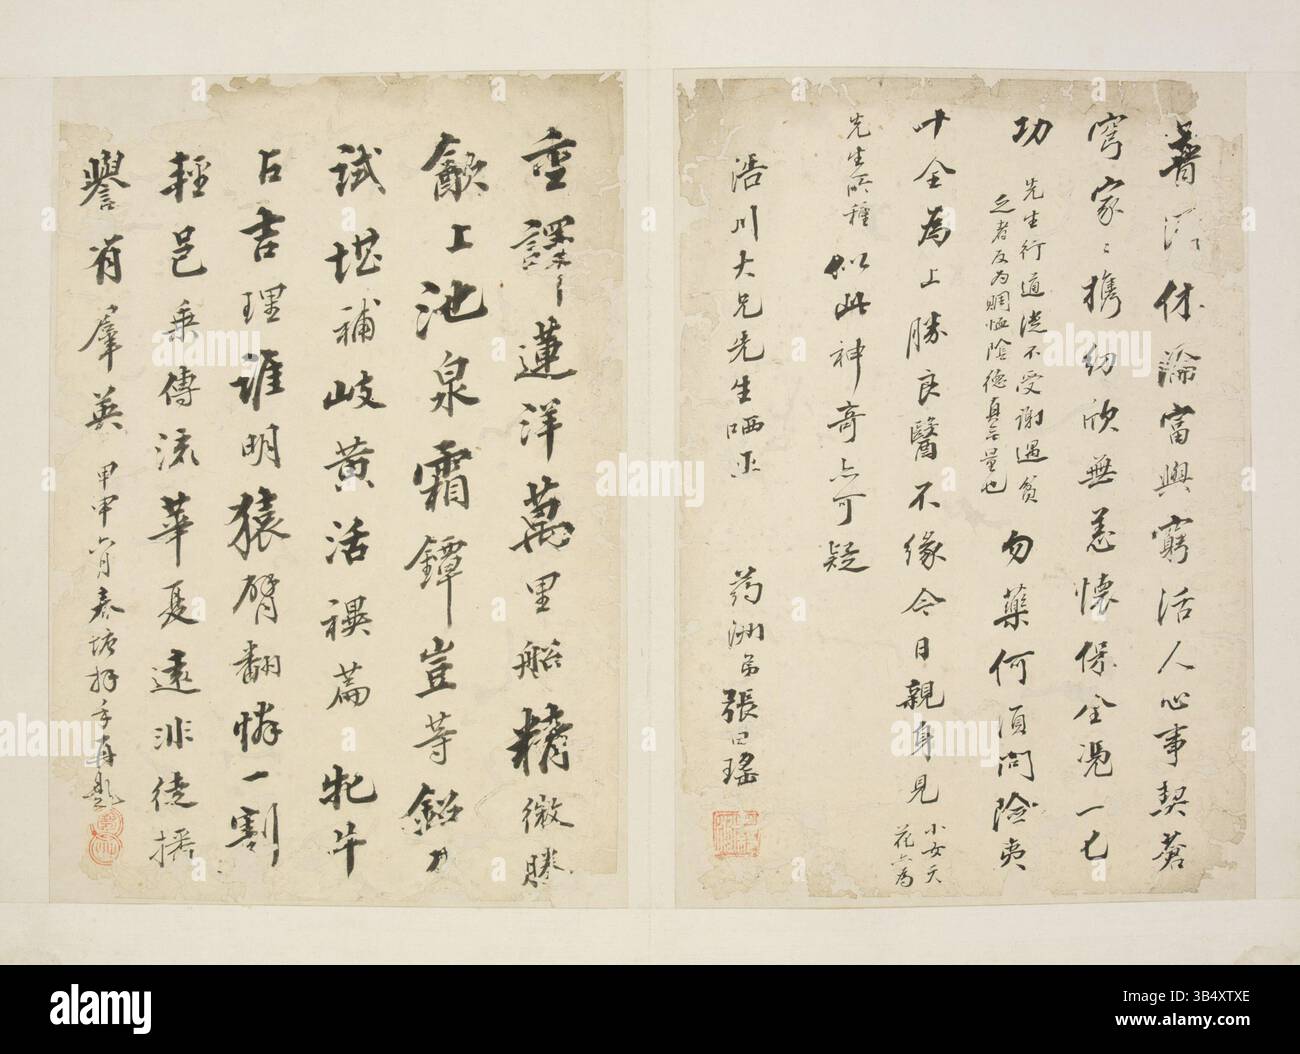 普濟休論富與窮活人心事契蒼
穹家〻攜幼欣無恙懷保全憑一七
功
先生行道從不受謝遇貧
之者反為賙恤陰德真無量也
勿藥何須問險夷
十全為上勝良醫不緣今日親身見
小女天
花六為
先生所種
似此神奇点可疑
浯川大兄先生哂正
药洲弟張曰瑤
重譯蓮洋萬里船精微勝
飲上池泉霜鐔豈等鉛刀
試堪補岐黃活襈篇牝牛
占吉理誰明猿臂翻憐一割
輕邑乘傳流華夏遠非徒播
譽有羣英
甲申六月春塘拜手再題
alamy
Image ID: 3B4XTXE
www.alamy.com